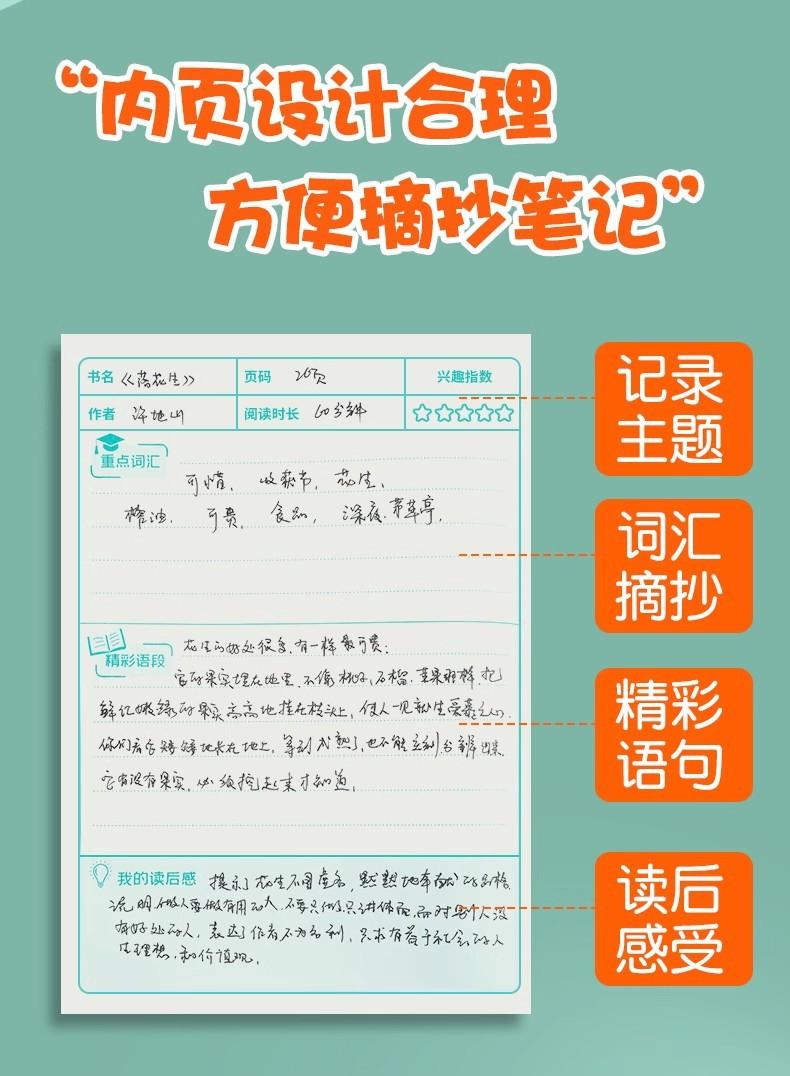 “内页设计合理
方便摘抄笔记”
书名 《落花生》 页码 26页 兴趣指数
作者 许地山 阅读时长 60分钟
重点词汇
可惜、收获节、花生、
榨油、可贵、食品、深夜、茅草亭。
精彩语段 花生的好处很多,有一样最可贵:
它的果实埋在地里,不像桃子、石榴、苹果那样,把
鲜红嫩绿的果实高高地挂在枝头上,使人一见就生爱慕之心。
你们看它矮矮地长在地上,等到成熟了,也不能立刻分辨出来
它有没有果实,必须挖起来才知道。
我的读后感 揭示了花生不图虚名,默默地奉献的品格
说明做人要做有用的人,不要只做只讲体面,而对别人没
有好处的人,表达了作者不为名利,只求有益于社会的人
生理想和价值观。
记录
主题
词汇
摘抄
精彩
语句
读后
感受